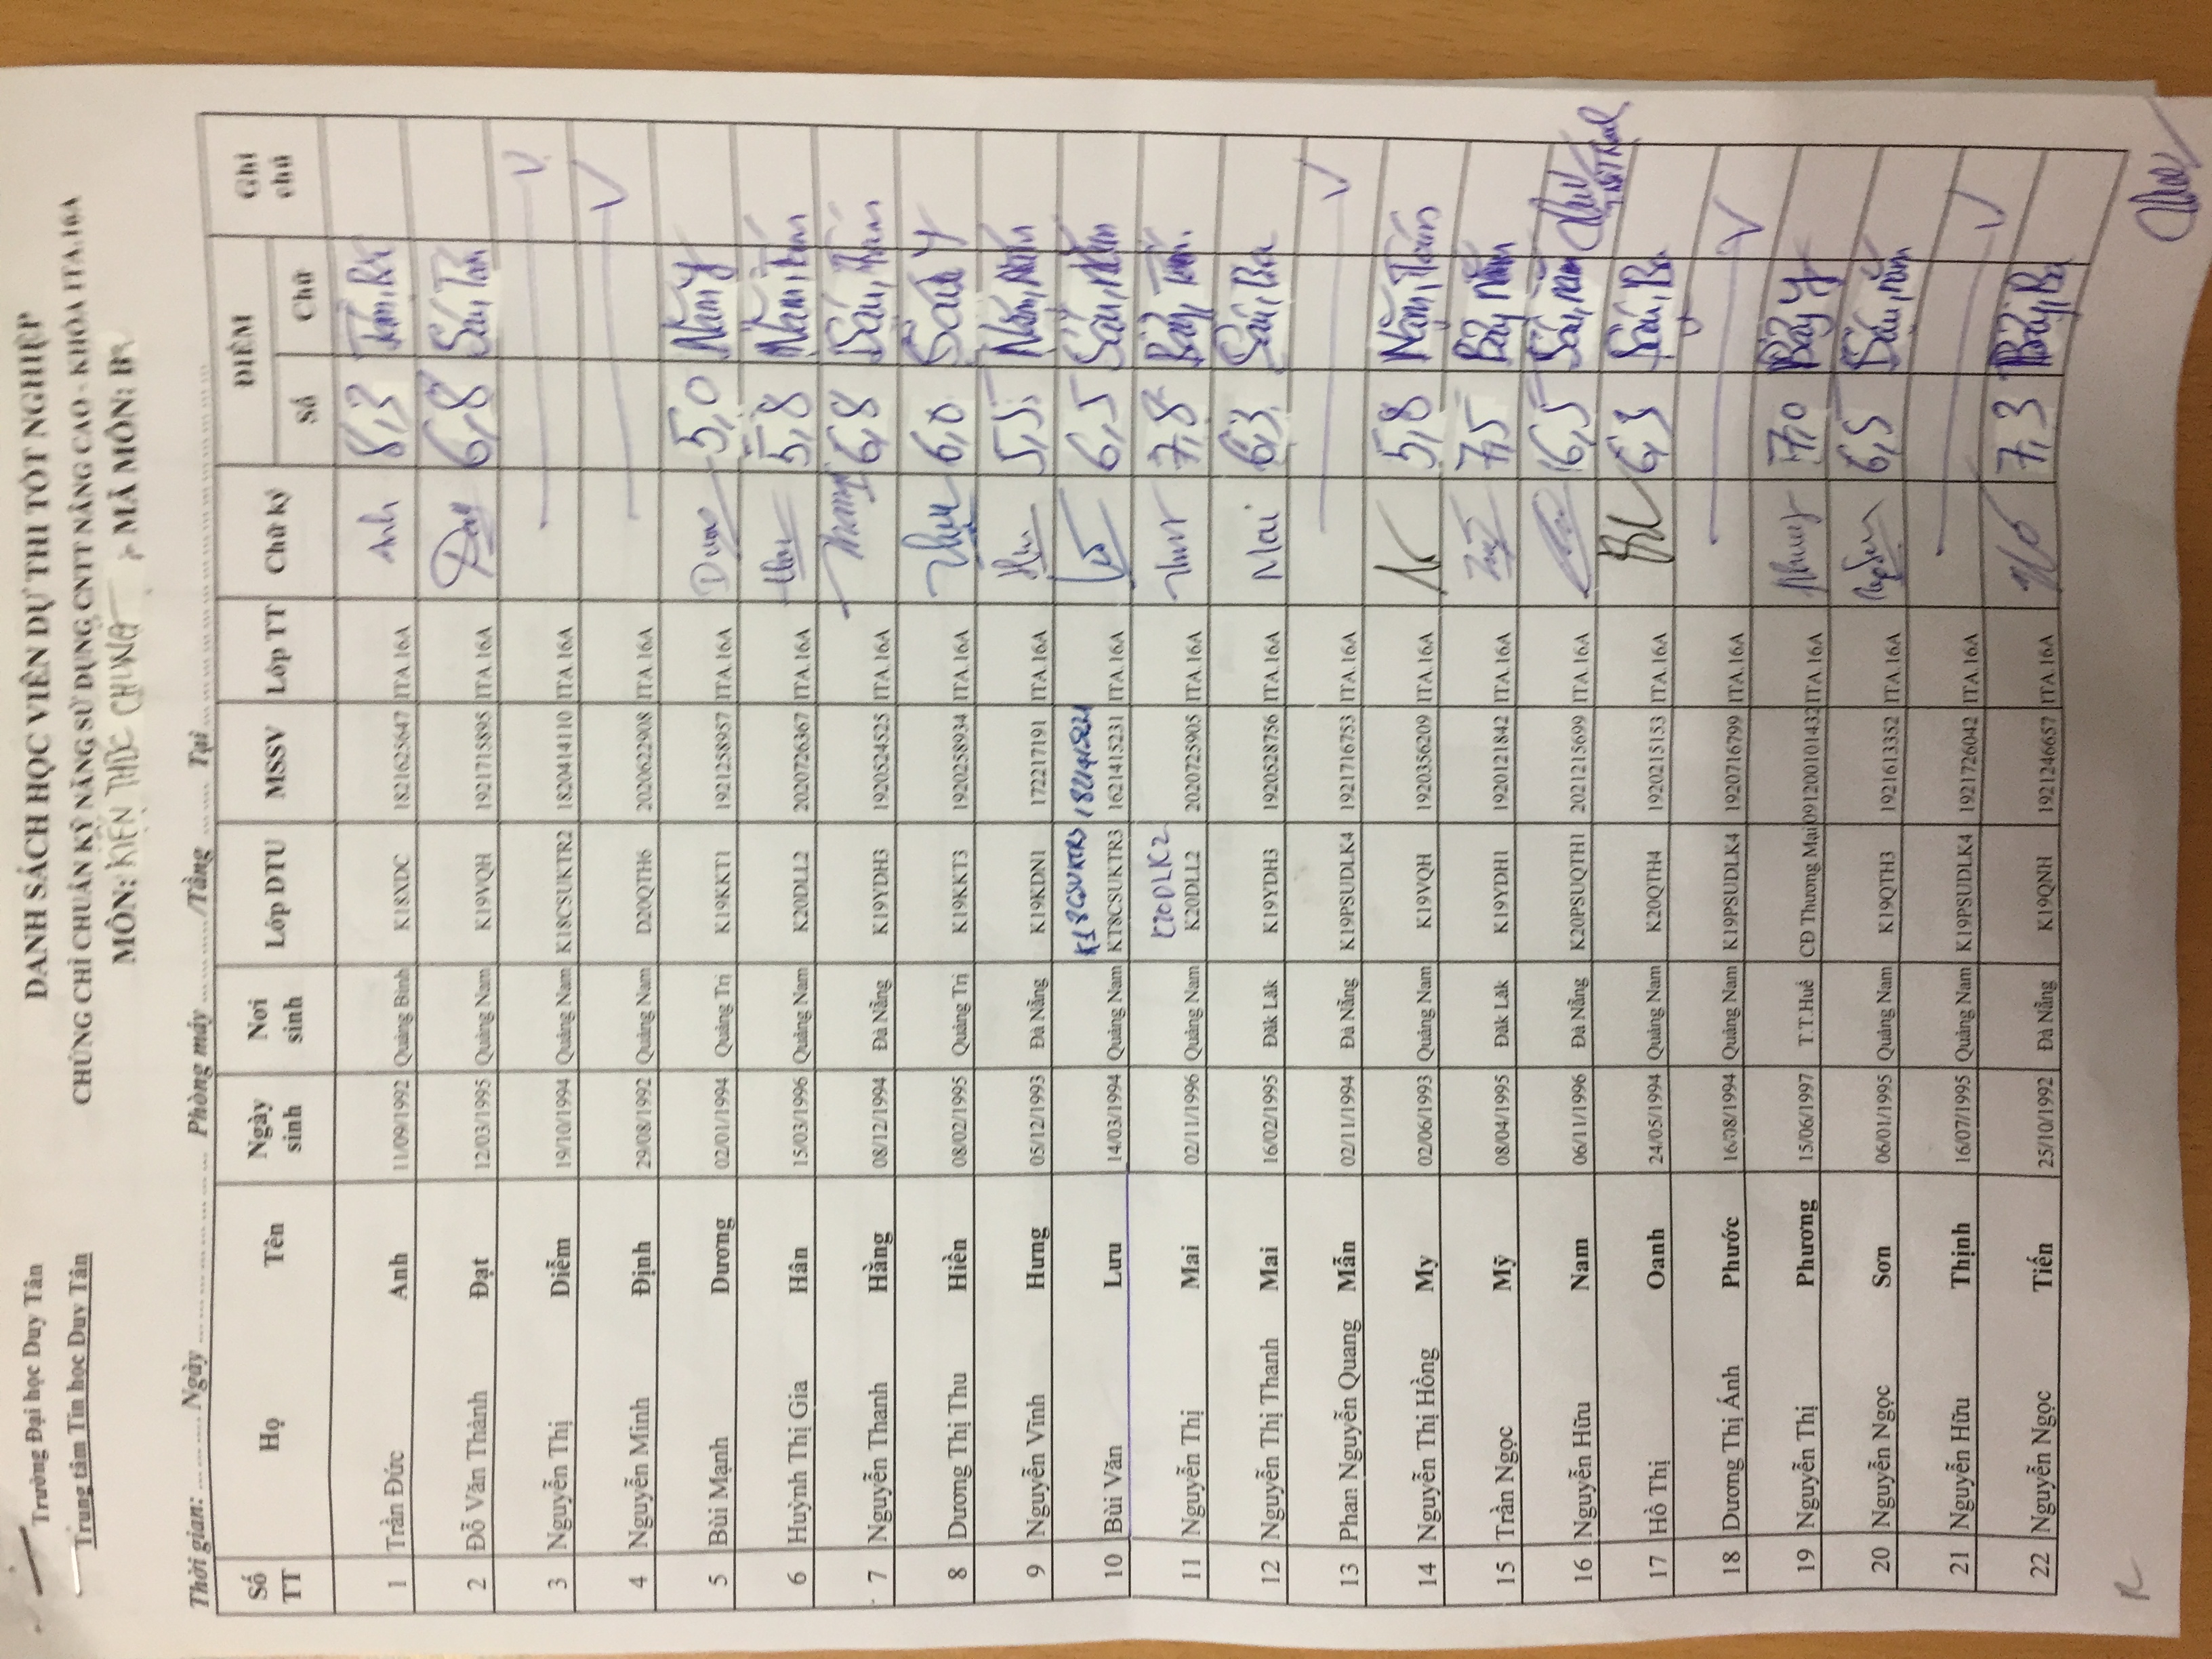 Trường Đại học Duy Tân
Trung tâm Tin học Duy Tân
DANH SÁCH HỌC VIÊN DỰ THI TỐT NGHIỆP
CHỨNG CHỈ CHUẨN KỸ NĂNG SỬ DỤNG CNTT NÂNG CAO - KHÓA ITA.16A
MÔN: KIẾN THỨC CHUNG MÃ MÔN:
Thời gian: ............ Ngày ............ Phòng máy ............/Tầng ............ Tại ............
Số TT Họ Tên Ngày sinh Nơi sinh Lớp DTU MSSV Lớp TT Chữ ký ĐIỂM Số Chữ Ghi chú
1 Trần Đức Anh 11/09/1992 Quảng Bình K18XDC 1821625647 ITA.16A Anh 8,3 Tám, Ba
2 Đỗ Văn Thành Đạt 12/03/1995 Quảng Nam K19VQH 1921715895 ITA.16A Đạt 6,8 Sáu, Tám
3 Nguyễn Thị Diễm 19/10/1994 Quảng Nam K18CSUKTR2 1820414110 ITA.16A V
4 Nguyễn Minh Định 29/08/1992 Quảng Nam D20QTH6 2020622908 ITA.16A V
5 Bùi Mạnh Dương 02/01/1994 Quảng Trị K19KKT1 1921258957 ITA.16A 5,0 Năm Y
6 Huỳnh Thị Gia Hân 15/03/1996 Quảng Nam K20DLL2 2020726367 ITA.16A 5,8 Năm, Tám
7 Nguyễn Thanh Hằng 08/12/1994 Đà Nẵng K19YDH3 1920524525 ITA.16A 6,8 Sáu, Tám
8 Dương Thị Thu Hiền 08/02/1995 Quảng Trị K19KKT3 1920258934 ITA.16A 6,0 Sáu Y
9 Nguyễn Vĩnh Hưng 05/12/1993 Đà Nẵng K19KDN1 172217191 ITA.16A 5,5 Năm, Năm
K18CSUKTR3
10 Bùi Văn Lưu 14/03/1994 Quảng Nam KT8CSUKTR3 1621415231 ITA.16A 6,5 Sáu, Năm
K20DLK2
11 Nguyễn Thị Mai 02/11/1996 Quảng Nam K20DLL2 2020725905 ITA.16A 7,8 Bảy, Tám
12 Nguyễn Thị Thanh Mai 16/02/1995 Đăk Lăk K19YDH3 1920528756 ITA.16A Mai 6,3 Sáu, Ba
13 Phan Nguyễn Quang Mẫn 02/11/1994 Đà Nẵng K19PSUDLK4 1921716753 ITA.16A V
14 Nguyễn Thị Hồng My 02/06/1993 Quảng Nam K19VQH 1920356209 ITA.16A 5,8 Năm, Tám
15 Trần Ngọc Mỹ 08/04/1995 Đăk Lăk K19YDH1 1920121842 ITA.16A 7,5 Bảy, Năm
16 Nguyễn Hữu Nam 06/11/1996 Đà Nẵng K20PSUQTH1 2021215699 ITA.16A 6,5 Sáu, Năm
17 Hồ Thị Oanh 24/05/1994 Quảng Nam K20QTH4 1920215153 ITA.16A 6,3 Sáu, Ba
18 Dương Thị Ánh Phước 16/08/1994 Quảng Nam K19PSUDLK4 1920716799 ITA.16A V
19 Nguyễn Thị Phương 15/06/1997 T.T.Huế CĐ Thương Mại 091200101432 ITA.16A 7,0 Bảy Y
20 Nguyễn Ngọc Sơn 06/01/1995 Quảng Nam K19QTH3 1921613352 ITA.16A 6,5 Sáu, Năm
21 Nguyễn Hữu Thịnh 16/07/1995 Quảng Nam K19PSUDLK4 1921726042 ITA.16A V
22 Nguyễn Ngọc Tiến 25/10/1992 Đà Nẵng K19QNH 1921246657 ITA.16A 7,3 Bảy, Ba